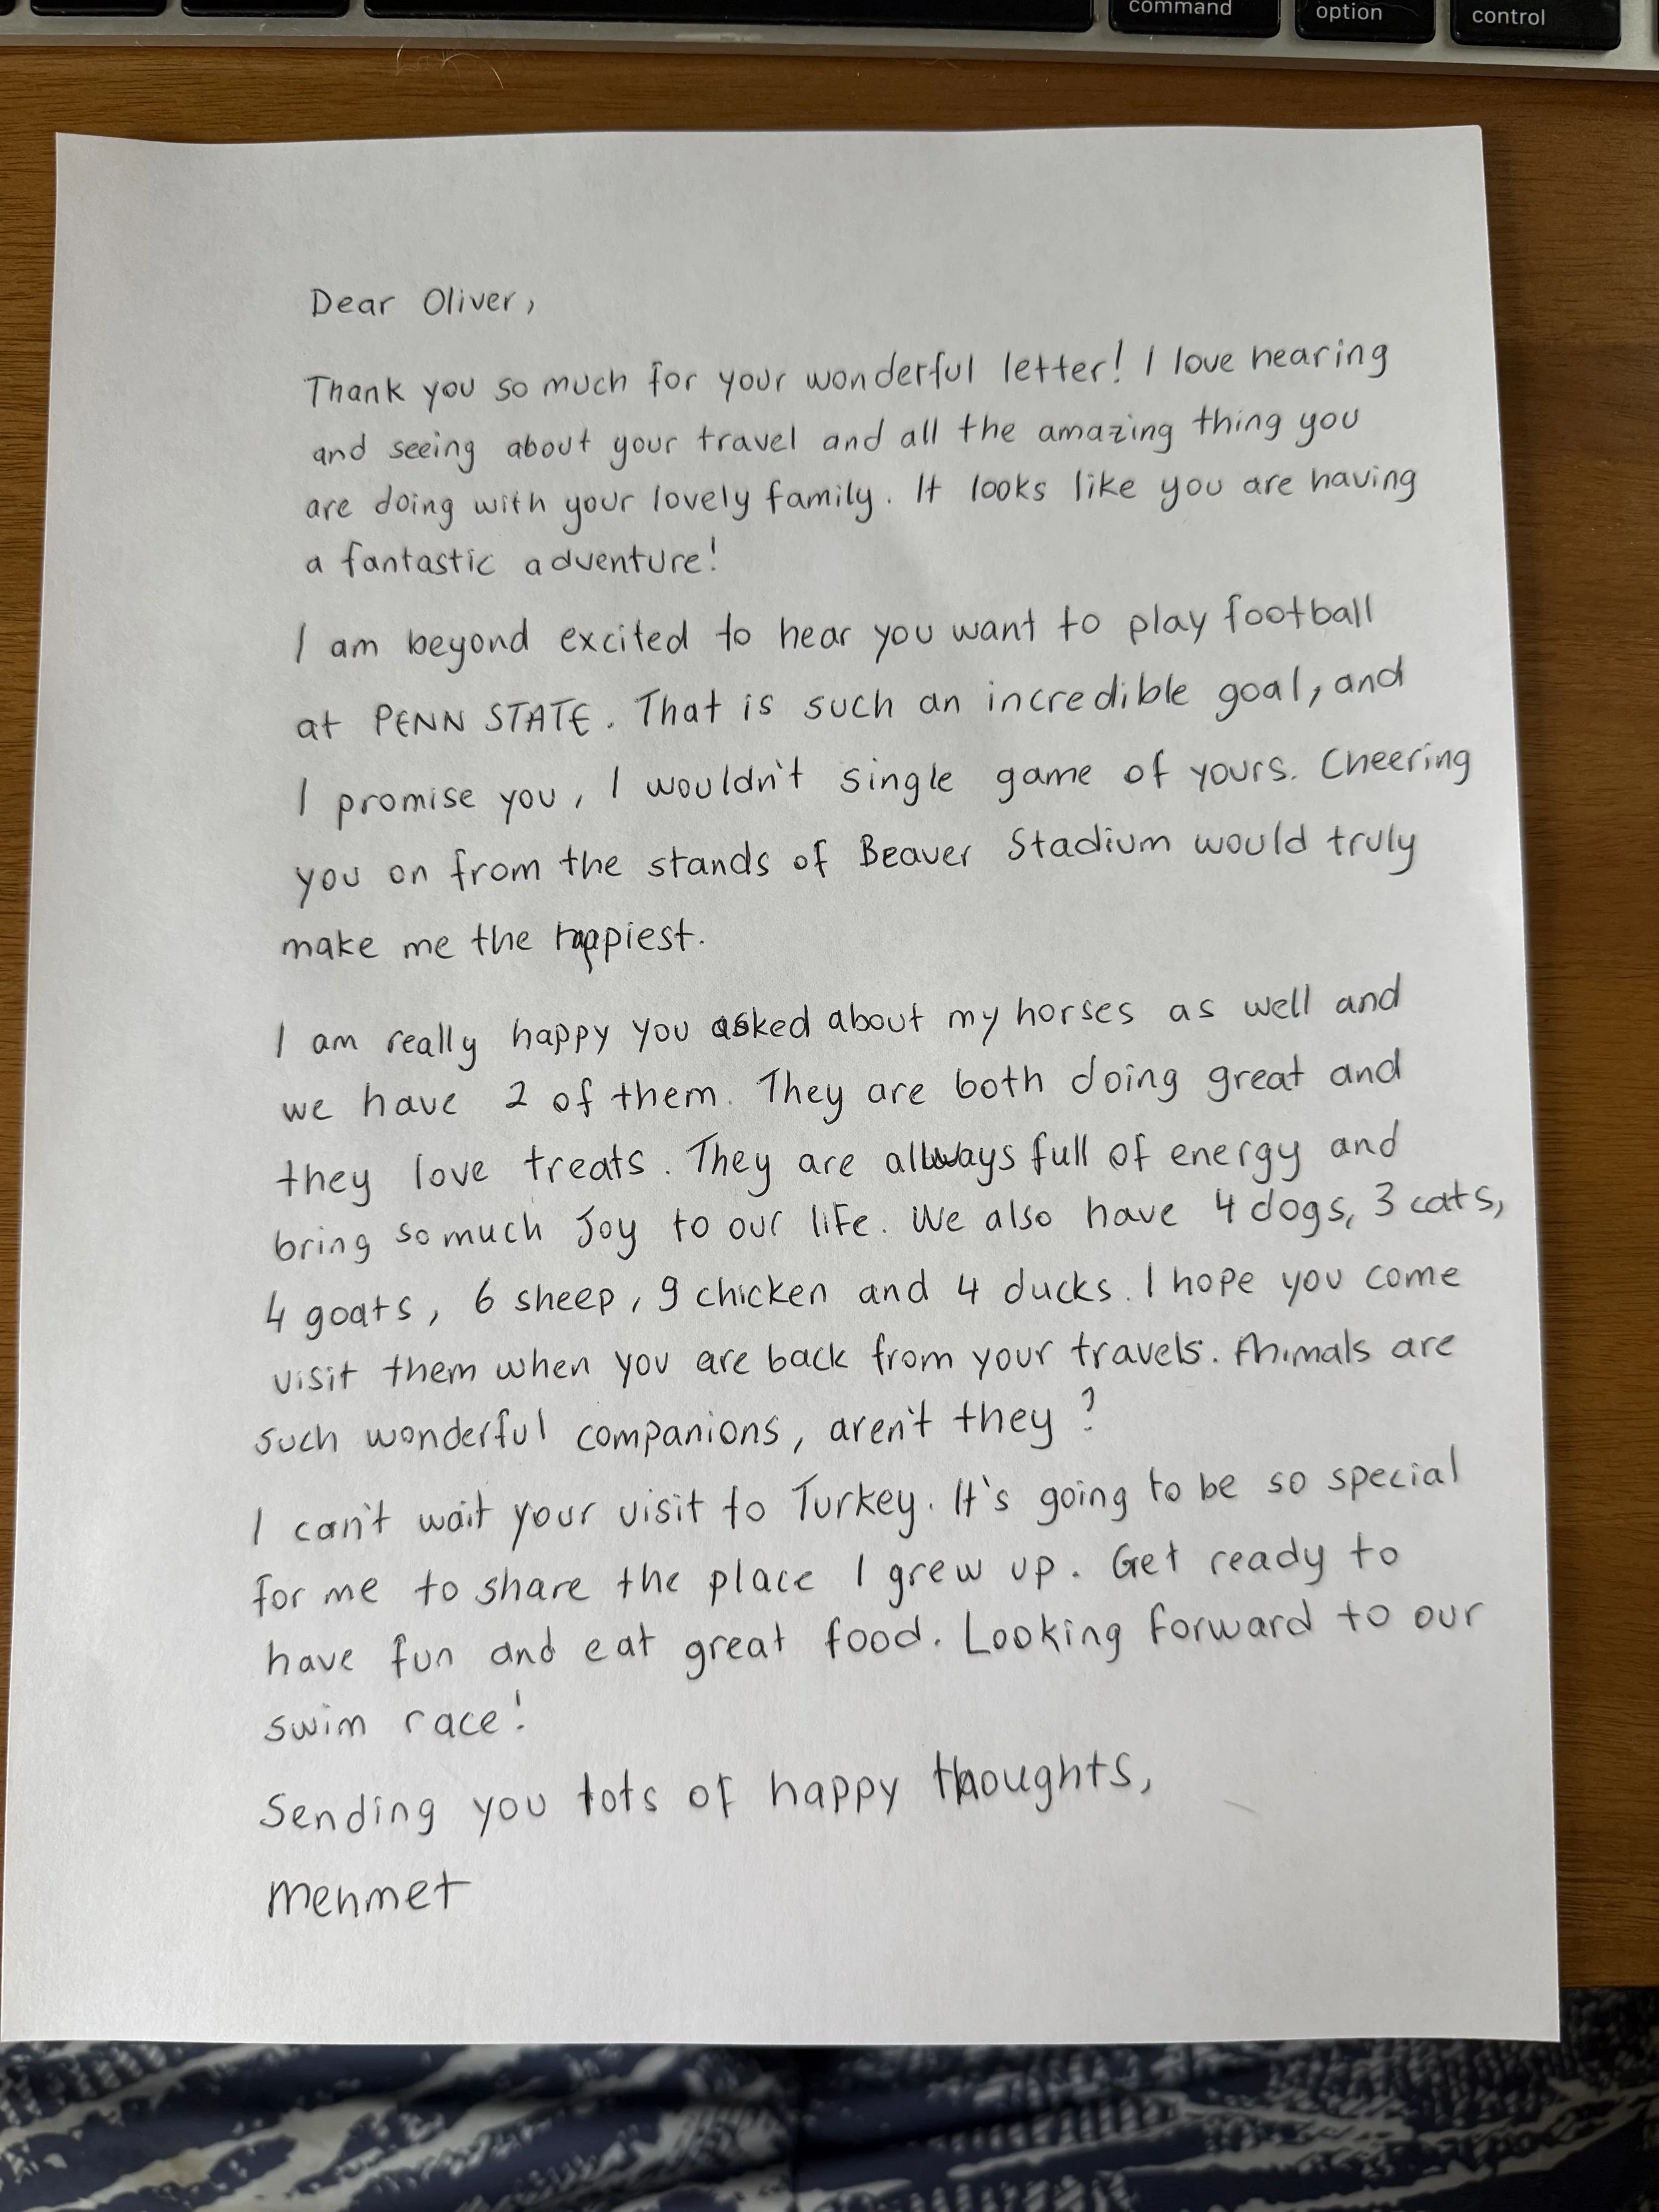 command
option
control
Dear Oliver,
Thank you so much for your wonderful letter! I love hearing
and seeing about your travel and all the amazing thing you
are doing with your lovely family. It looks like you are having
a fantastic adventure!
I am beyond excited to hear you want to play football
at PENN STATE. That is such an incredible goal, and
I promise you, I wouldn't single game of yours. Cheering
you on from the stands of Beaver Stadium would truly
make me the happiest.
I am really happy you asked about my horses as well and
we have 2 of them. They are both doing great and
they love treats. They are always full of energy and
bring so much Joy to our life. We also have 4 dogs, 3 cats,
4 goats, 6 sheep, 9 chicken and 4 ducks. I hope you come
visit them when you are back from your travels. Animals are
such wonderful companions, aren't they?
I can't wait your visit to Turkey. It's going to be so special
for me to share the place I grew up. Get ready to
have fun and eat great food. Looking forward to our
swim race!
Sending you lots of happy thoughts,
Mehmet